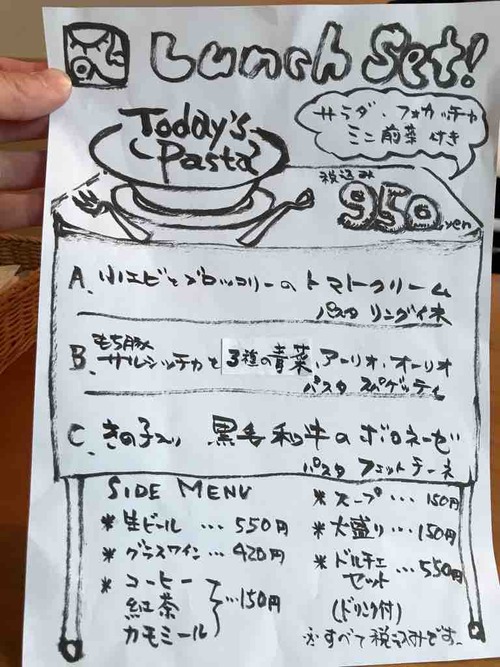 Lunch Set!
サラダ、フォカッチャ
ミニ前菜 付き
Today's
Pasta
税込み
950yen
A. 小エビとブロッコリーのトマトクリーム
パスタ リングイネ
B. もち豚
サルシッチャと3種の青菜、アーリオ・オーリオ
パスタ スパゲッティ
C. きの子入り 黒毛和牛のボロネーゼ
パスタ フェットチーネ
SIDE MENU
*生ビール…550円
*グラスワイン…420円
*コーヒー
紅茶 …150円
カモミール
*スープ…150円
*大盛り…150円
*ドルチェ
セット…550円
(ドリンク付)
※すべて税込みです。